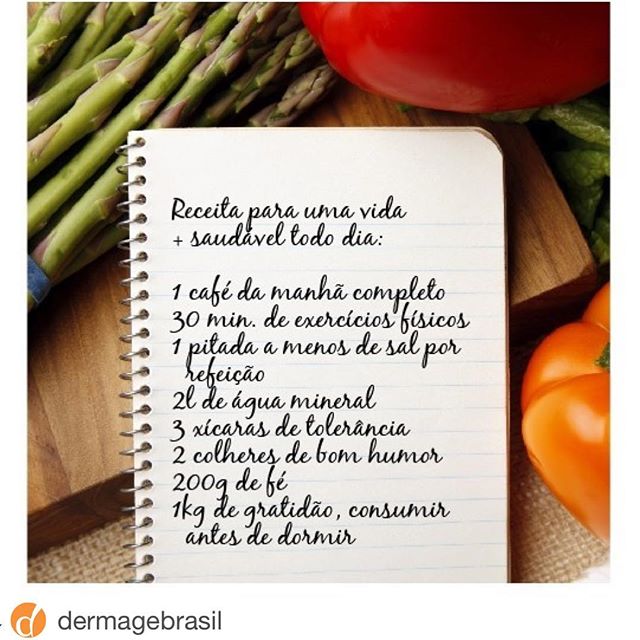 Receita para uma vida
+ saudável todo dia:
1 café da manhã completo
30 min. de exercícios físicos
1 pitada a menos de sal por
refeição
2l de água mineral
3 xícaras de tolerância
2 colheres de bom humor
200g de fé
1kg de gratidão, consumir
antes de dormir
dermagebrasil